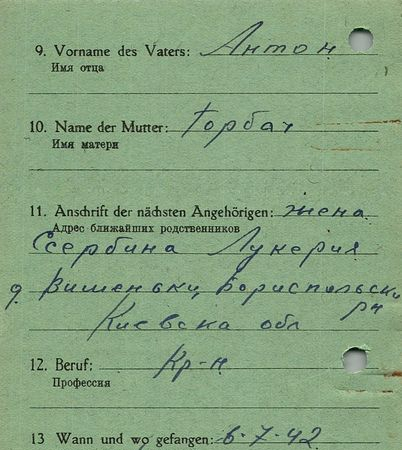 9. Vorname des Vaters: Антон
Имя отца
10. Name der Mutter: Горбач
Имя матери
11. Anschrift der nächsten Angehörigen: жена
Адрес ближайших родственников
Сербина Лукерия
д. Вишеньки, Бориспольски
рн
Киевска обл
12. Beruf: Кр-н
Профессия
13 Wann und wo gefangen: 6-7-42